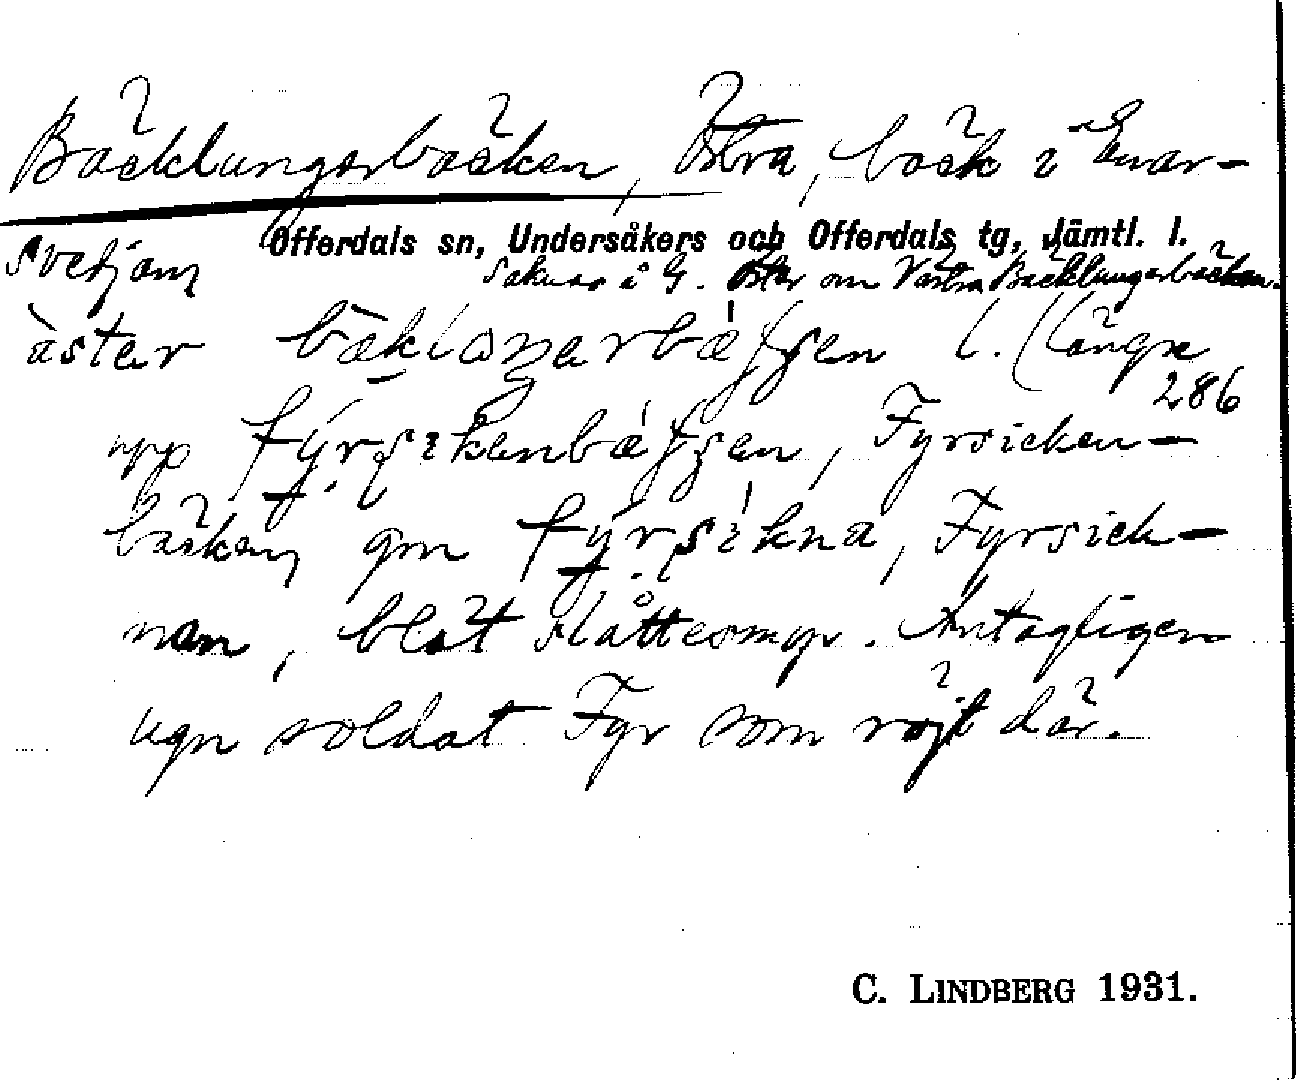 Bäcklungarbäcken, Östra, bäck i Enar-
svedjan Offerdals sn, Undersåkers och Offerdals tg, Jämtl. l.
Saknas å G. Öster om Västra Bäcklungarbäcken.
àstar bæklaŋarbæʃʃen l. (längre
286
upp fyrsikenbæʃʃen, Fyrsicken-
bäcken, gm fyrsikna, Fyrsick-
nan, blöt slåttesmyr. Antagligen
ugn soldat Fyr som röjt där.
C. LINDBERG 1931.